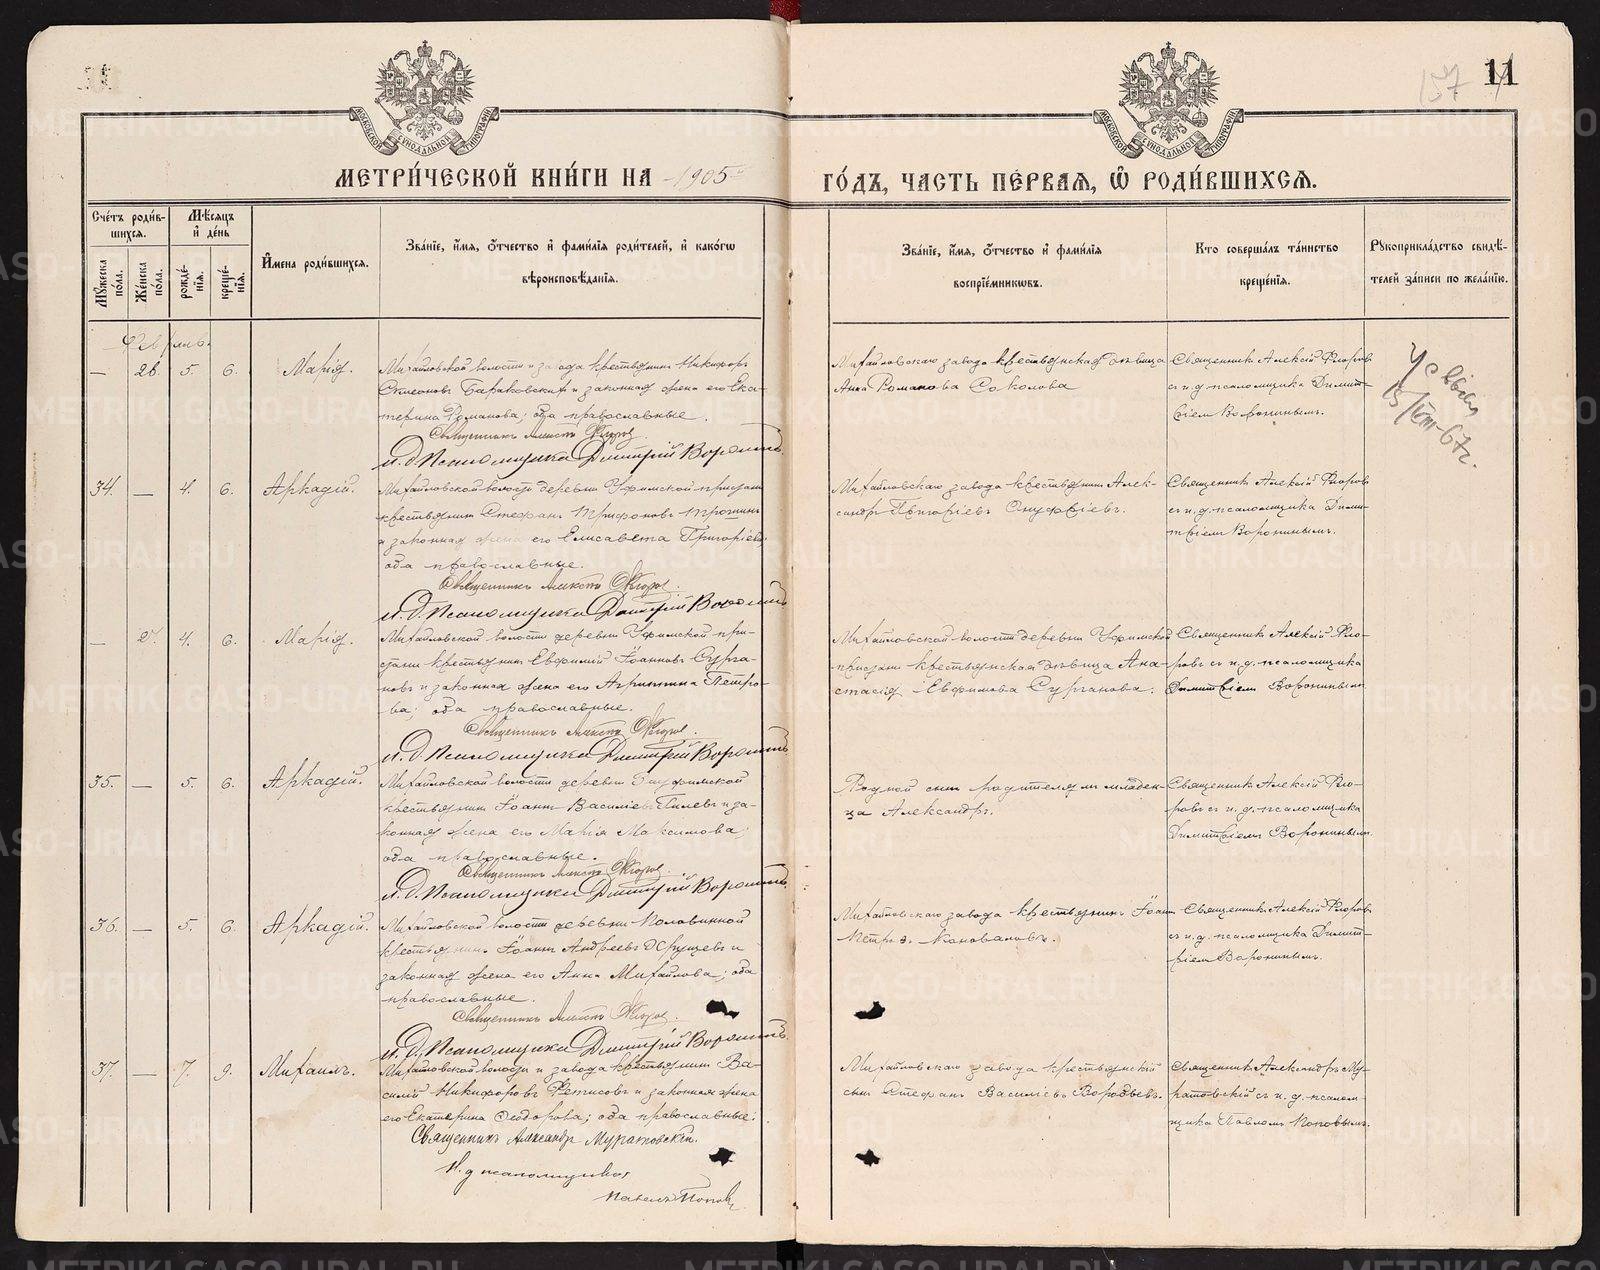 11
157
МОСКОВСКОЙ СѴНОДАЛЬНОЙ ТИПОГРАФІИ
МОСКОВСКОЙ СѴНОДАЛЬНОЙ ТИПОГРАФІИ
МЕТРИ́ЧЕСКОЙ КНИ́ГИ НА 1905 ГО́ДЪ, ЧАСТЬ ПЕ́РВАЯ, Ѿ РОДИ́ВШИХСЯ.
Сче́тъ роди́в-
шихся.
Мѣ́сяцъ
и҆ де́нь
Мꙋ́жеска по́ла.
Же́нска по́ла.
рожде́-нїя.
креще́-нїя.
И҆мена роди́вшихся.
Зва́нїе, и҆́мя, ѻ҆́тчество и҆ фами́лїя роди́телей, и҆ како́гѡ
вѣроисповѣ́данїя.
Зва́нїе, и҆́мя, ѻ҆́тчество и҆ фами́лїя
воспрїе́мникѡвъ.
Кто соверша́лъ та́инство
креще́нїя.
Рꙋкоприкла́дство свидѣ́-
телей за́писи по жела́нїю.
Февраль.
— 28. 5. 6. Марія.
Михайловской волости и завода крестьянинъ Никифоръ
Симеоновъ Бараковскихъ и законная жена его Ека-
терина Романова; оба православные.
Священникъ Алексѣй Флоровъ.
и. д. Псаломщика Дмитрій Воронинъ.
Михайловскаго завода крестьянская дѣвица
Анна Романова Соколова
Священникъ Алексѣй Флоровъ
съ и. д. псаломщика Димит-
ріемъ Воронинымъ.
34. — 4. 6. Аркадій.
Михайловской волости деревни Уфимской пристани
крестьянинъ Стефанъ Трифоновъ Трошинъ
и законная жена его Елисавета Григоріева;
оба православные.
Священникъ Алексѣй Флоровъ.
и. д. Псаломщика Дмитрій Воронинъ
Михайловскаго завода крестьянинъ Алек-
сандръ Григоріевъ Онуфріевъ.
Священникъ Алексѣй Флоровъ
съ и. д. псаломщика Дими-
тріемъ Воронинымъ.
— 29. 4. 6. Марія.
Михайловской волости деревни Уфимской при-
стани крестьянинъ Евфимій Іоанновъ Сурга-
новъ и законная жена его Агриппина Петро-
ва; оба православные.
Священникъ Алексѣй Флоровъ.
и. д. Псаломщика Дмитрій Воронинъ
Михайловской волости деревни Уфимской
пристани крестьянская дѣвица Ана-
стасія Евфимова Сурганова.
Священникъ Алексѣй Фло-
ровъ съ и. д. псаломщика
Димитріемъ Воронинымъ
35. — 5. 6. Аркадій.
Михайловской волости деревни
крестьянинъ Іоаннъ Василіевъ Гилевъ и за-
конная жена его Марія Максимова;
оба православные.
Священникъ Алексѣй Флоровъ.
и. д. Псаломщика Дмитрій Воронинъ
Родной сынъ родителямъ младен-
ца Александръ.
Священникъ Алексѣй Фло-
ровъ съ и. д. псаломщика
Димитріемъ Воронинымъ.
36. — 5. 6. Аркадій.
Михайловской волости деревни Половинной
крестьянинъ Іоаннъ Андреевъ Хрущевъ и
законная жена его Анна Михайлова; оба
православные.
Священникъ Алексѣй Флоровъ.
и. д. Псаломщика Дмитрій Воронинъ
Михайловскаго завода крестьянинъ Іоаннъ
Петровъ Коноваловъ.
Священникъ Алексѣй Флоровъ
съ и. д. псаломщика Димит-
ріемъ Воронинымъ.
37. — 7. 9. Михаилъ.
Михайловской волости и завода крестьянинъ Ва-
силій Никифоровъ Фетисовъ и законная жена
его Екатерина Ѳеодорова; оба православные.
Священникъ Александръ Муратовскій.
И. д псаломщика
Павелъ Поповъ
Михайловскаго завода крестьянскій
сынъ Стефанъ Василіевъ Воробьевъ.
Священникъ Александръ Му-
ратовскій съ и. д. псалом-
щика Павломъ Поповымъ.
METRIKI.GASO-URAL.RU